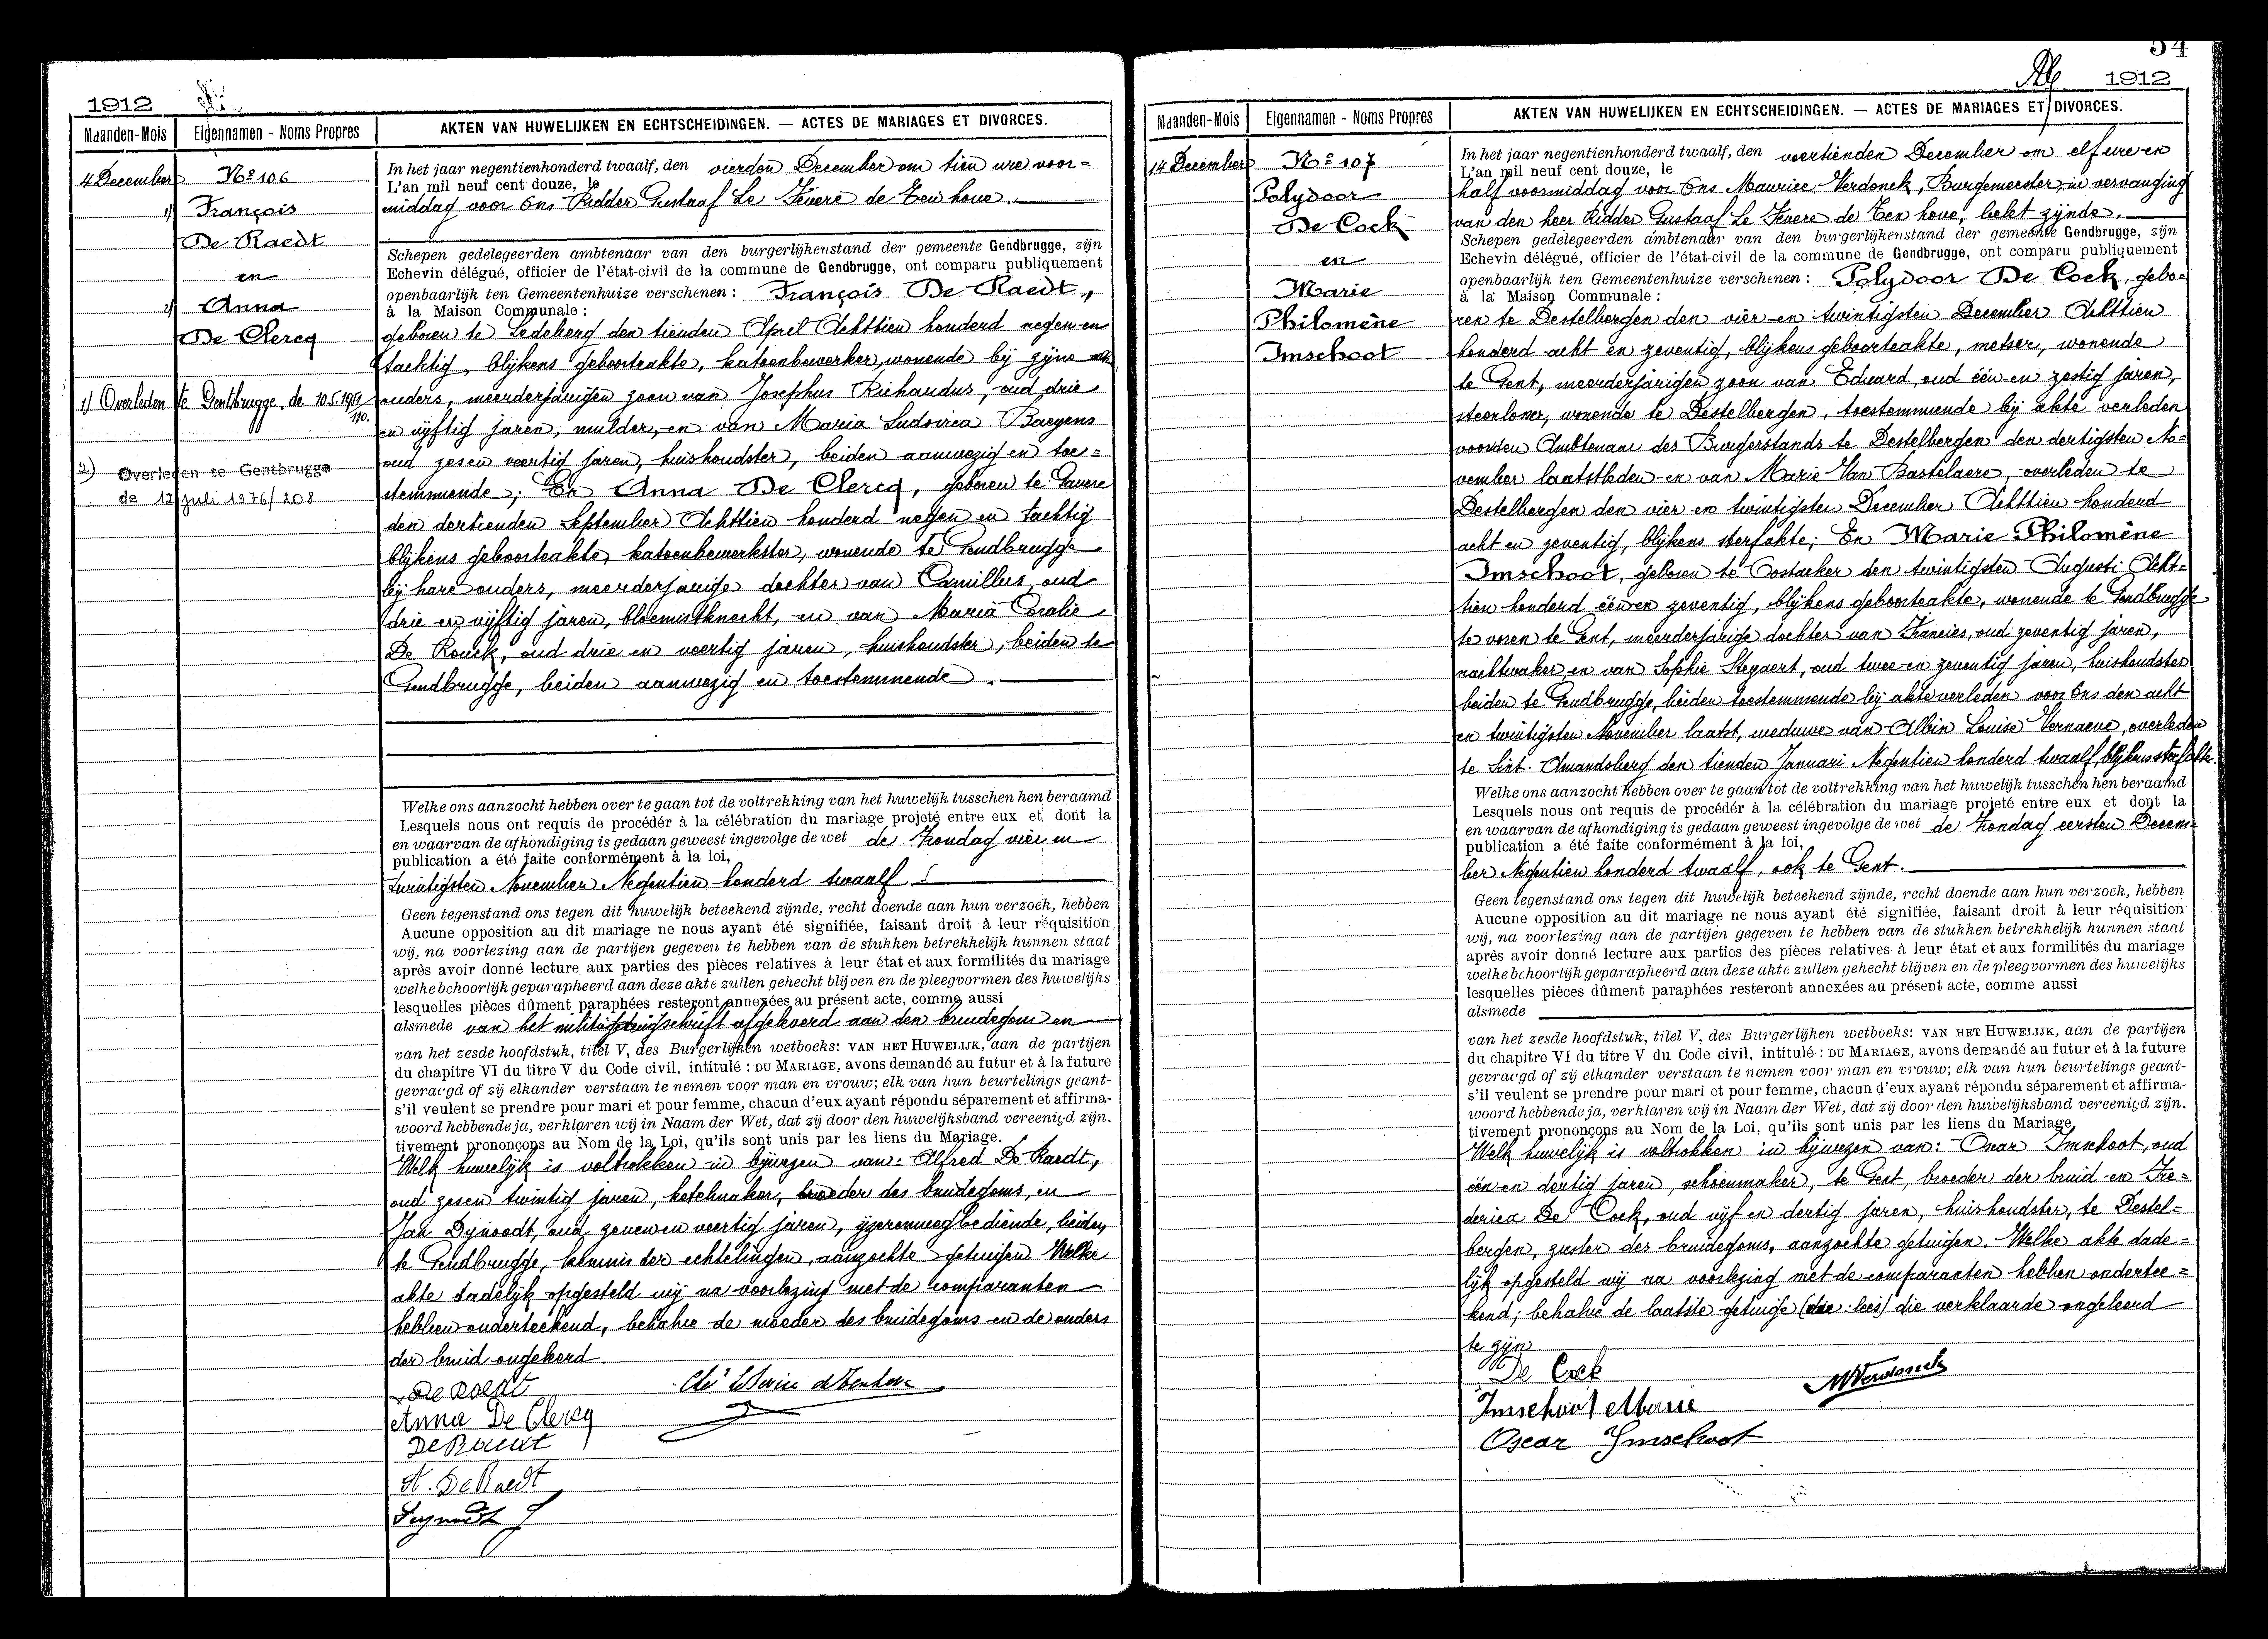 1912
Maanden-Mois
Eigennamen - Noms Propres
AKTEN VAN HUWELIJKEN EN ECHTSCHEIDINGEN. — ACTES DE MARIAGES ET DIVORCES.
4 December
Nº 106
1) François
De Raedt
en
2) Anna
De Clercq
1) Overleden te Gentbrugge, de 10.5.
2) Overleden te Gentbrugge
de 12 juli 1976/208
In het jaar negentienhonderd twaalf, den vierden December om tien ure voor=
L'an mil neuf cent douze, le
middag voor Ons Ridder Gustaaf Le Fevere de Ten hove.
Schepen gedelegeerden ambtenaar van den burgerlijkenstand der gemeente Gendbrugge, zijn
Echevin délégué, officier de l'état-civil de la commune de Gendbrugge, ont comparu publiquement
openbaarlijk ten Gemeentenhuize verschenen: François De Raedt,
à la Maison Communale:
geboren te Ledeberg den tienden April Achttien honderd negen en
tachtig, blijkens geboorteakte, katoenbewerker, wonende bij zijne
ouders, meerderjarigen zoon van Josephus Richardus, oud drie
en vijftig jaren, mulder, en van Maria Ludovica Baeyens
oud zesen veertig jaren, huishoudster, beiden aanwezig en toe=
stemmende; En Anna De Clercq, geboren te Gavere
den dertienden September Achttien honderd negen en tachtig
blijkens geboorteakte, katoenbewerkster, wonende te Gendbrugge
bij hare ouders, meerderjarige dochter van Camillus, oud
drie en vijftig jaren, bloemistknecht, en van Maria Coralie
De Rouck, oud drie en veertig jaren, huishoudster, beiden te
Gendbrugge, beiden aanwezig en toestemmende.
Welke ons aanzocht hebben over te gaan tot de voltrekking van het huwelijk tusschen hen beraamd
Lesquels nous ont requis de procédér à la célébration du mariage projeté entre eux et dont la
en waarvan de afkondiging is gedaan geweest ingevolge de wet de Zondag vier en
publication a été faite conformément à la loi,
twintigsten November Negentien honderd twaalf
Geen tegenstand ons tegen dit huwelijk beteekend zijnde, recht doende aan hun verzoek, hebben
Aucune opposition au dit mariage ne nous ayant été signifiée, faisant droit à leur réquisition
wij, na voorlezing aan de partijen gegeven te hebben van de stukken betrekkelijk hunnen staat
après avoir donné lecture aux parties des pièces relatives à leur état et aux formilités du mariage
welke behoorlijk geparapheerd aan deze akte zullen gehecht blijven en de pleegvormen des huwelijks
lesquelles pièces dûment paraphées resteront annexées au présent acte, comme aussi
alsmede van het militiegetuigschrift afgeleverd aan den bruidegom en
van het zesde hoofdstuk, titel V, des Burgerlijken wetboeks: VAN HET HUWELIJK, aan de partijen
du chapitre VI du titre V du Code civil, intitulé: DU MARIAGE, avons demandé au futur et à la future
gevraegd of zij elkander verstaan te nemen voor man en vrouw; elk van hun beurtelings geant-
s'il veulent se prendre pour mari et pour femme, chacun d'eux ayant répondu séparement et affirma-
woord hebbende ja, verklaren wij in Naam der Wet, dat zij door den huwelijksband vereenigd zijn.
tivement prononçons au Nom de la Loi, qu'ils sont unis par les liens du Mariage.
Welk huwelijk is voltrokken in bijwezen van: Alfred De Raedt,
oud zesen twintig jaren, ketelmaker, broeder des bruidegoms, en
Jan Dynoodt, oud zevenen veertig jaren, ijzerenwegbediende, beiden
te Gendbrugge, kennis der echtelingen, aanzochte getuigen. Welke
akte dadelijk opgesteld wij na voorlezing met de comparanten
hebben onderteekend, behalve de moeder des bruidegoms en de ouders
der bruid ongeleerd.
De Raedt
Anna De Clercq
De Raedt
A. De Raedt
54
1912
Maanden-Mois
Eigennamen - Noms Propres
AKTEN VAN HUWELIJKEN EN ECHTSCHEIDINGEN. — ACTES DE MARIAGES ET DIVORCES.
14 December
Nº 107
Polydoor
De Cock
en
Marie
Philomène
Imschoot
In het jaar negentienhonderd twaalf, den veertienden December om elf ure en
L'an mil neuf cent douze, le
half voormiddag voor Ons Maurice Verdonck, Burgemeester, in vervanging
van den heer Ridder Gustaaf Le Fevere de Ten hove, belet zijnde.
Schepen gedelegeerden ambtenaar van den burgerlijkenstand der gemeente Gendbrugge, zijn
Echevin délégué, officier de l'état-civil de la commune de Gendbrugge, ont comparu publiquement
openbaarlijk ten Gemeentenhuize verschenen: Polydoor De Cock, gebo=
à la Maison Communale:
ren te Destelbergen den vier en twintigsten December Achttien
honderd acht en zeventig, blijkens geboorteakte, metser, wonende
te Gent, meerderjarigen zoon van Eduard, oud één en zestig jaren,
wonende te Destelbergen, toestemmende bij akte verleden
voor den Ambtenaar des Burgerstands te Destelbergen den dertigsten No=
vember laatstleden en van Marie Van Bastelaere, overleden te
Destelbergen den vier en twintigsten December Achttien honderd
acht en zeventig, blijkens sterfakte; En Marie Philomène
Imschoot, geboren te Oostacker den twintigsten Augusti Acht=
tien honderd één en zeventig, blijkens geboorteakte, wonende te Gendbrugge
te voren te Gent, meerderjarige dochter van Francies, oud zeventig jaren,
nachtwaker en van Sophie Steyaert, oud twee en zeventig jaren, huishoudster
beiden te Gendbrugge, beiden toestemmende bij akte verleden voor Ons den acht
en twintigsten November laatst, weduwe van Albin Louise Vernaeve, overleden
te Sint. Amandsberg den tienden Januari Negentien honderd twaalf, blijkens sterfakte.
Welke ons aanzocht hebben over te gaan tot de voltrekking van het huwelijk tusschen hen beraamd
Lesquels nous ont requis de procédér à la célébration du mariage projeté entre eux et dont la
en waarvan de afkondiging is gedaan geweest ingevolge de wet de Zondag eersten Decem=
publication a été faite conformément à la loi,
ber Negentien honderd twaalf, ook te Gent.
Geen tegenstand ons tegen dit huwelijk beteekend zijnde, recht doende aan hun verzoek, hebben
Aucune opposition au dit mariage ne nous ayant été signifiée, faisant droit à leur réquisition
wij, na voorlezing aan de partijen gegeven te hebben van de stukken betrekkelijk hunnen staat
après avoir donné lecture aux parties des pièces relatives à leur état et aux formilités du mariage
welke behoorlijk geparapheerd aan deze akte zullen gehecht blijven en de pleegvormen des huwelijks
lesquelles pièces dûment paraphées resteront annexées au présent acte, comme aussi
alsmede
van het zesde hoofdstuk, titel V, des Burgerlijken wetboeks: VAN HET HUWELIJK, aan de partijen
du chapitre VI du titre V du Code civil, intitulé: DU MARIAGE, avons demandé au futur et à la future
gevraegd of zij elkander verstaan te nemen voor man en vrouw; elk van hun beurtelings geant-
s'il veulent se prendre pour mari et pour femme, chacun d'eux ayant répondu séparement et affirma-
woord hebbende ja, verklaren wij in Naam der Wet, dat zij door den huwelijksband vereenigd zijn.
tivement prononçons au Nom de la Loi, qu'ils sont unis par les liens du Mariage.
Welk huwelijk is voltrokken in bijwezen van: Oscar Imschoot, oud
één en dertig jaren, schoenmaker, te Gent, broeder der bruid en Fre=
derica De Cock, oud vijf en dertig jaren, huishoudster, te Destel=
bergen, zuster des bruidegoms, aanzochte getuigen. Welke akte dade=
lijk opgesteld wij na voorlezing met de comparanten hebben ondertee=
kend; behalve de laatste getuige (lees) die verklaarde ongeleerd
te zijn
De Cock
MVerdonck
Imschoot Marie
Oscar Imschoot